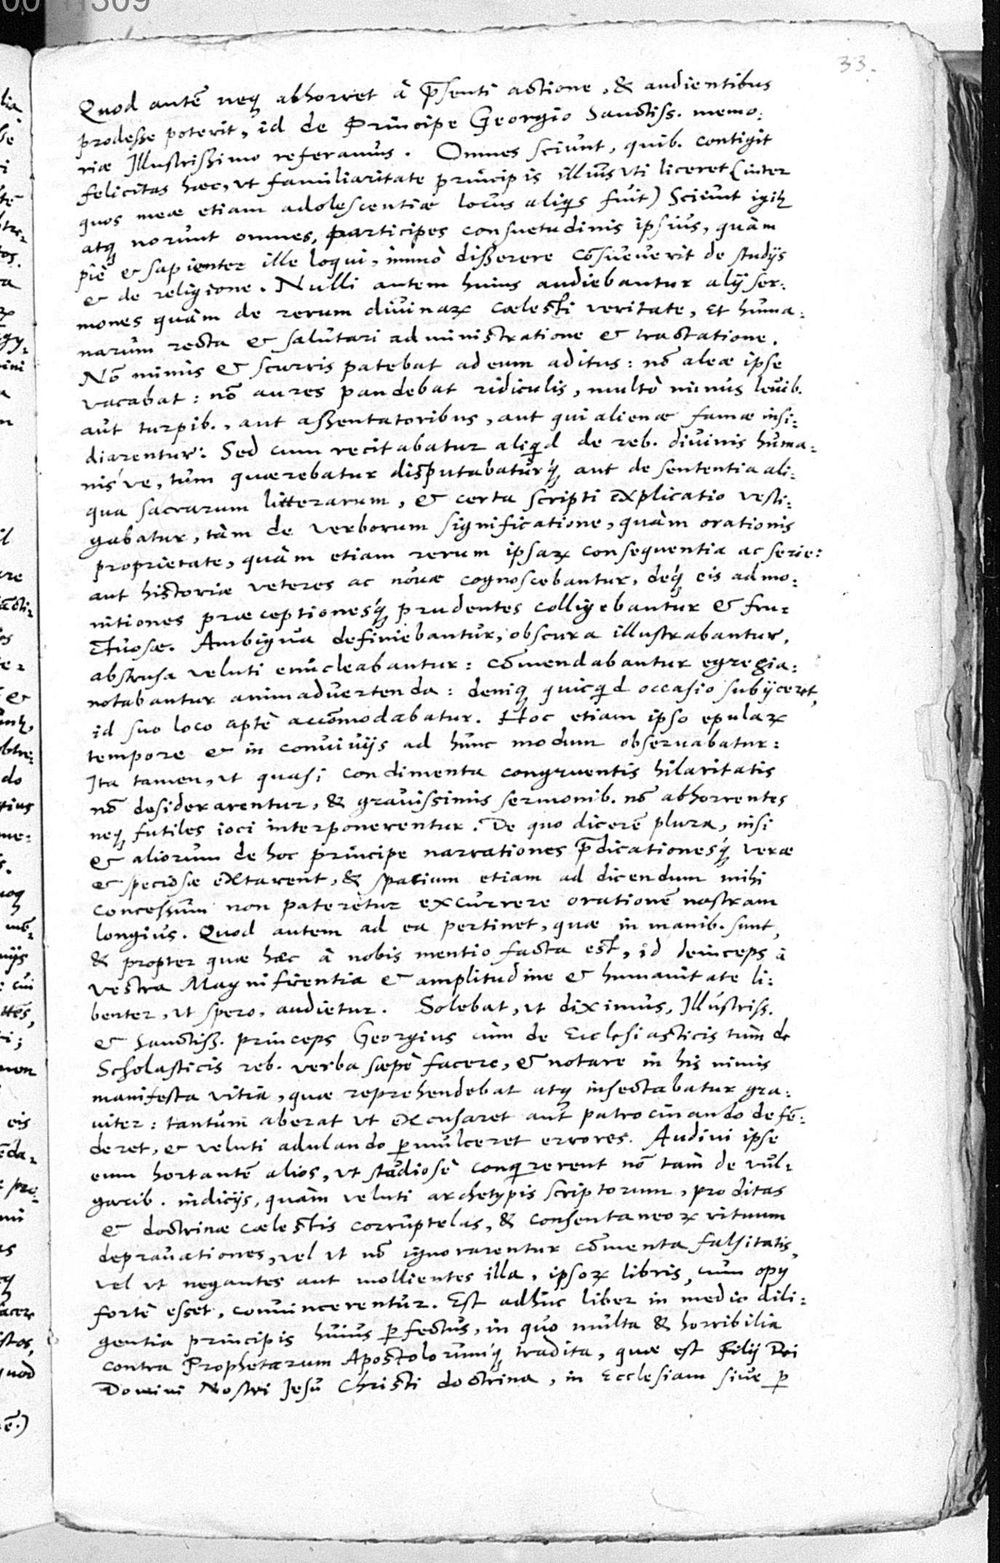 33.
Quod autē neq; abhorret à p̄senti actione, & audientibus
prodesse poterit, id de Principe Georgio Sanctiss. memo:
riæ Illustrissimo referamus. Omnes sciunt, quib. contigit
felicitas hæc, vt familiaritate principis illius vti liceret (inter
quos meæ etiam adolescentiæ locus aliq̃s fuit) Sciunt igit̃
atq; norunt omnes, participes consuetudinis ipsius, quàm
piè & sapienter ille loqui, immò disserere cōsueverit de studijs
& de religione. Nulli autem huius audiebantur alij ser:
mones quàm de rerum divinaꝝ cælesti veritate, et huma:
narum recta & salutari administratione & tractatione.
Nō mimis & scurris patebat ad eum aditus: nō aleæ ipse
vacabat: nō aures pandebat ridiculis, multò minus leuib.
aut turpib., aut assentatoribus, aut qui alienæ famæ insi:
diarentur. Sed cum recitabatur aliq̃d de reb. divinis huma:
nis ve, tum quærebatur disputabaturq; aut de sententia ali:
qua sacrarum litterarum, & certa scripti explicatio vesti:
gabatur, tàm de verborum significatione, quàm orationis
proprietate, quàm etiam rerum ipsaꝝ consequentia ac serie:
aut historiæ veteres ac novæ cognoscebantur, deq; eis admo:
nitiones præceptionesq; prudentes colligebantur & fru:
ctuosæ. Ambigua definiebantur, obscura illustrabantur,
abstrusa veluti enucleabantur: cōmendabantur egregia:
notabantur animadvertenda: deniq; quicq̃d occasio subijceret,
id suo loco aptè accōmodabatur. Hoc etiam ipso epulaꝝ
tempore & in conuiuijs ad hunc modum obseruabatur:
Ita tamen, vt quasi condimenta congruentis hilaritatis
nō desiderarentur, & gravissimis sermonib. nō abhorrentes
neq; futiles ioci interponerentur. De quo dicerē plura, nisi
& aliorum de hoc principe narrationes p̄dicationesq; veræ
& speciosæ extarent, & spatium etiam ad dicendum mihi
concessum non pateretur excurrere orationē nostram
longius. Quod autem ad ea pertinet, quæ in manib. sunt,
& propter quæ hæc à nobis mentio facta est, id deinceps à
vestra Magnificentia & amplitudine & humanitate li:
benter, vt spero, audietur. Solebat, vt diximus, Illustriss.
& Sanctiss. princeps Georgius cùm de Ecclesiasticis tum de
Scholasticis reb. verba sæpè facere, & notare in his nimis
manifesta vitia, quæ reprehendebat atq; insectabatur gra:
uiter: tantum aberat vt excusaret aut patrocinando defē:
deret, & veluti adulando p̱mulceret errores. Audiui ipse
eum hortantē alios, vt studiosè conq̃rerent nō tàm de vul:
garib. indicijs, quàm veluti archetypis scriptorum, proditas
& doctrinæ cælestis corruptelas, & consentaneoꝝ rituum
deprauationes, vel vt nō ignorarentur cōmenta falsitatis,
vel vt negantes aut mollientes illa, ipsoꝝ libris, cum op̃
fortè esset, convincerentur. Est adhuc liber in medio dili:
gentia principis huius p̱fectus, in quo multa & horribilia
contra Prophetarum Apostolorumq; tradita, quæ est Filij Dei
Domini Nostri Jesu Christi doctrina, in Ecclesiam sive p̱